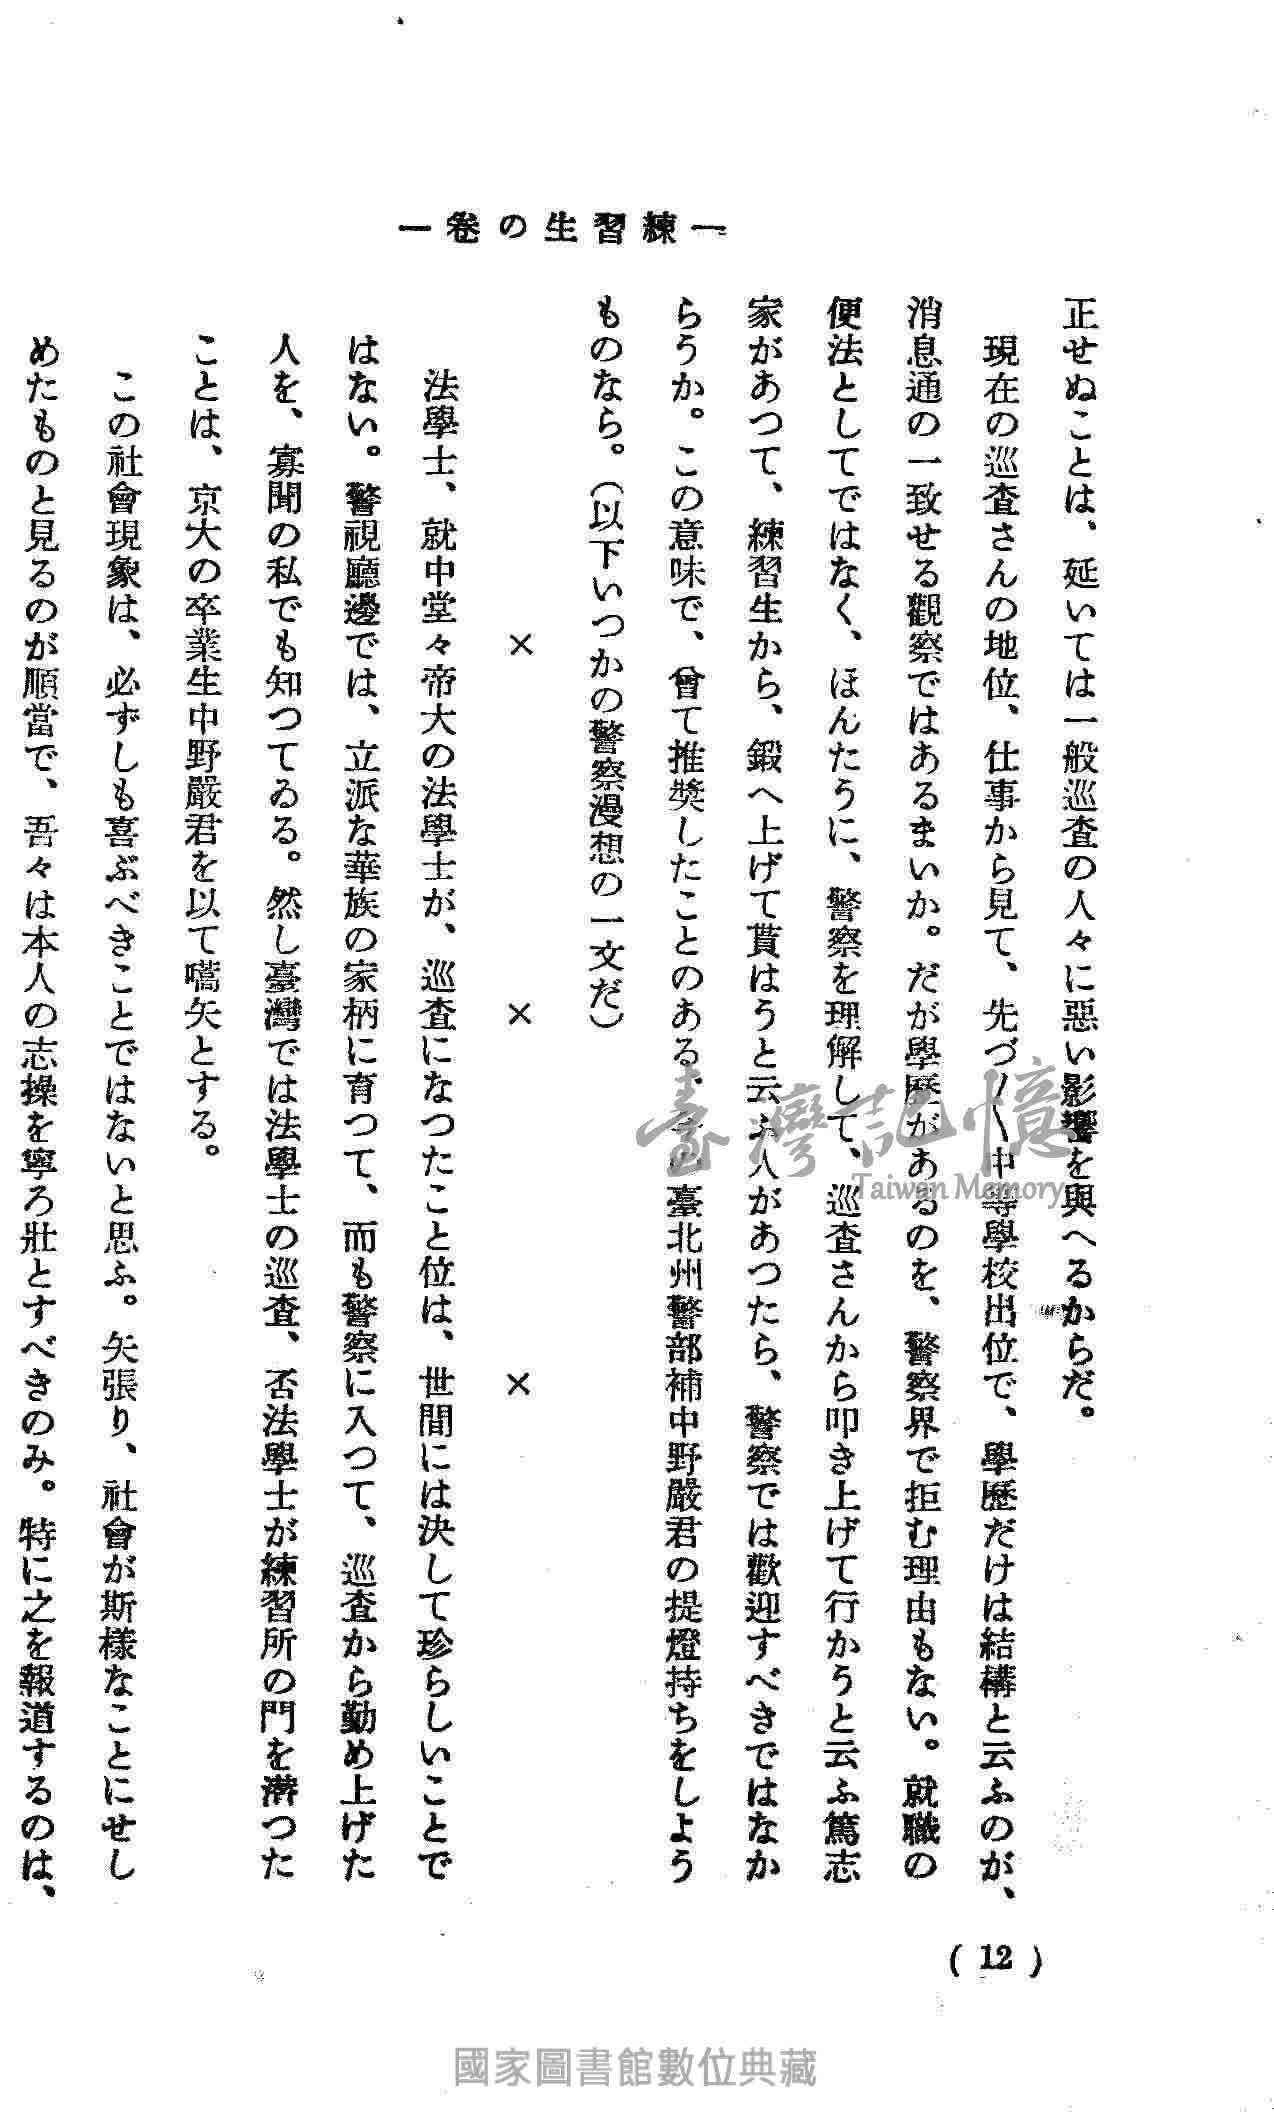 一練習生の卷一
正せぬことは、延いては一般巡査の人々に惡い影響を與へるからだ。
現在の巡査さんの地位、仕事から見て、先づ〱中等學校出位で、學歷だけは結構と云ふのが、
消息通の一致せる觀察ではあるまいか。だが學歷があるのを、警察界で拒む理由もない。就職の
便法としてではなく、ほんたうに、警察を理解して、巡査さんから叩き上げて行かうと云ふ篤志
家があつて、練習生から、鍛へ上げて貰はうと云ふ人があつたら、警察では歡迎すべきではなか
らうか。この意味で、曾て推奬したことのある、臺北州警部補中野嚴君の提燈持ちをしよう
ものなら。(以下いつかの警察漫想の一文だ)
× × ×
法學士、就中堂々帝大の法學士が、巡査になつたこと位は、世間には決して珍らしいことで
はない。警視廳邊では、立派な華族の家柄に育つて、而も警察に入つて、巡査から勤め上げた
人を、寡聞の私でも知つてゐる。然し臺灣では法學士の巡査、否法學士が練習所の門を潜つた
ことは、京大の卒業生中野嚴君を以て嚆矢とする。
この社會現象は、必ずしも喜ぶべきことではないと思ふ。矢張り、社會が斯樣なことにせし
めたものと見るのが順當で、吾々は本人の志操を寧ろ壯とすべきのみ。特に之を報道するのは、
(12)
臺灣記憶
Taiwan Memory
國家圖書館數位典藏